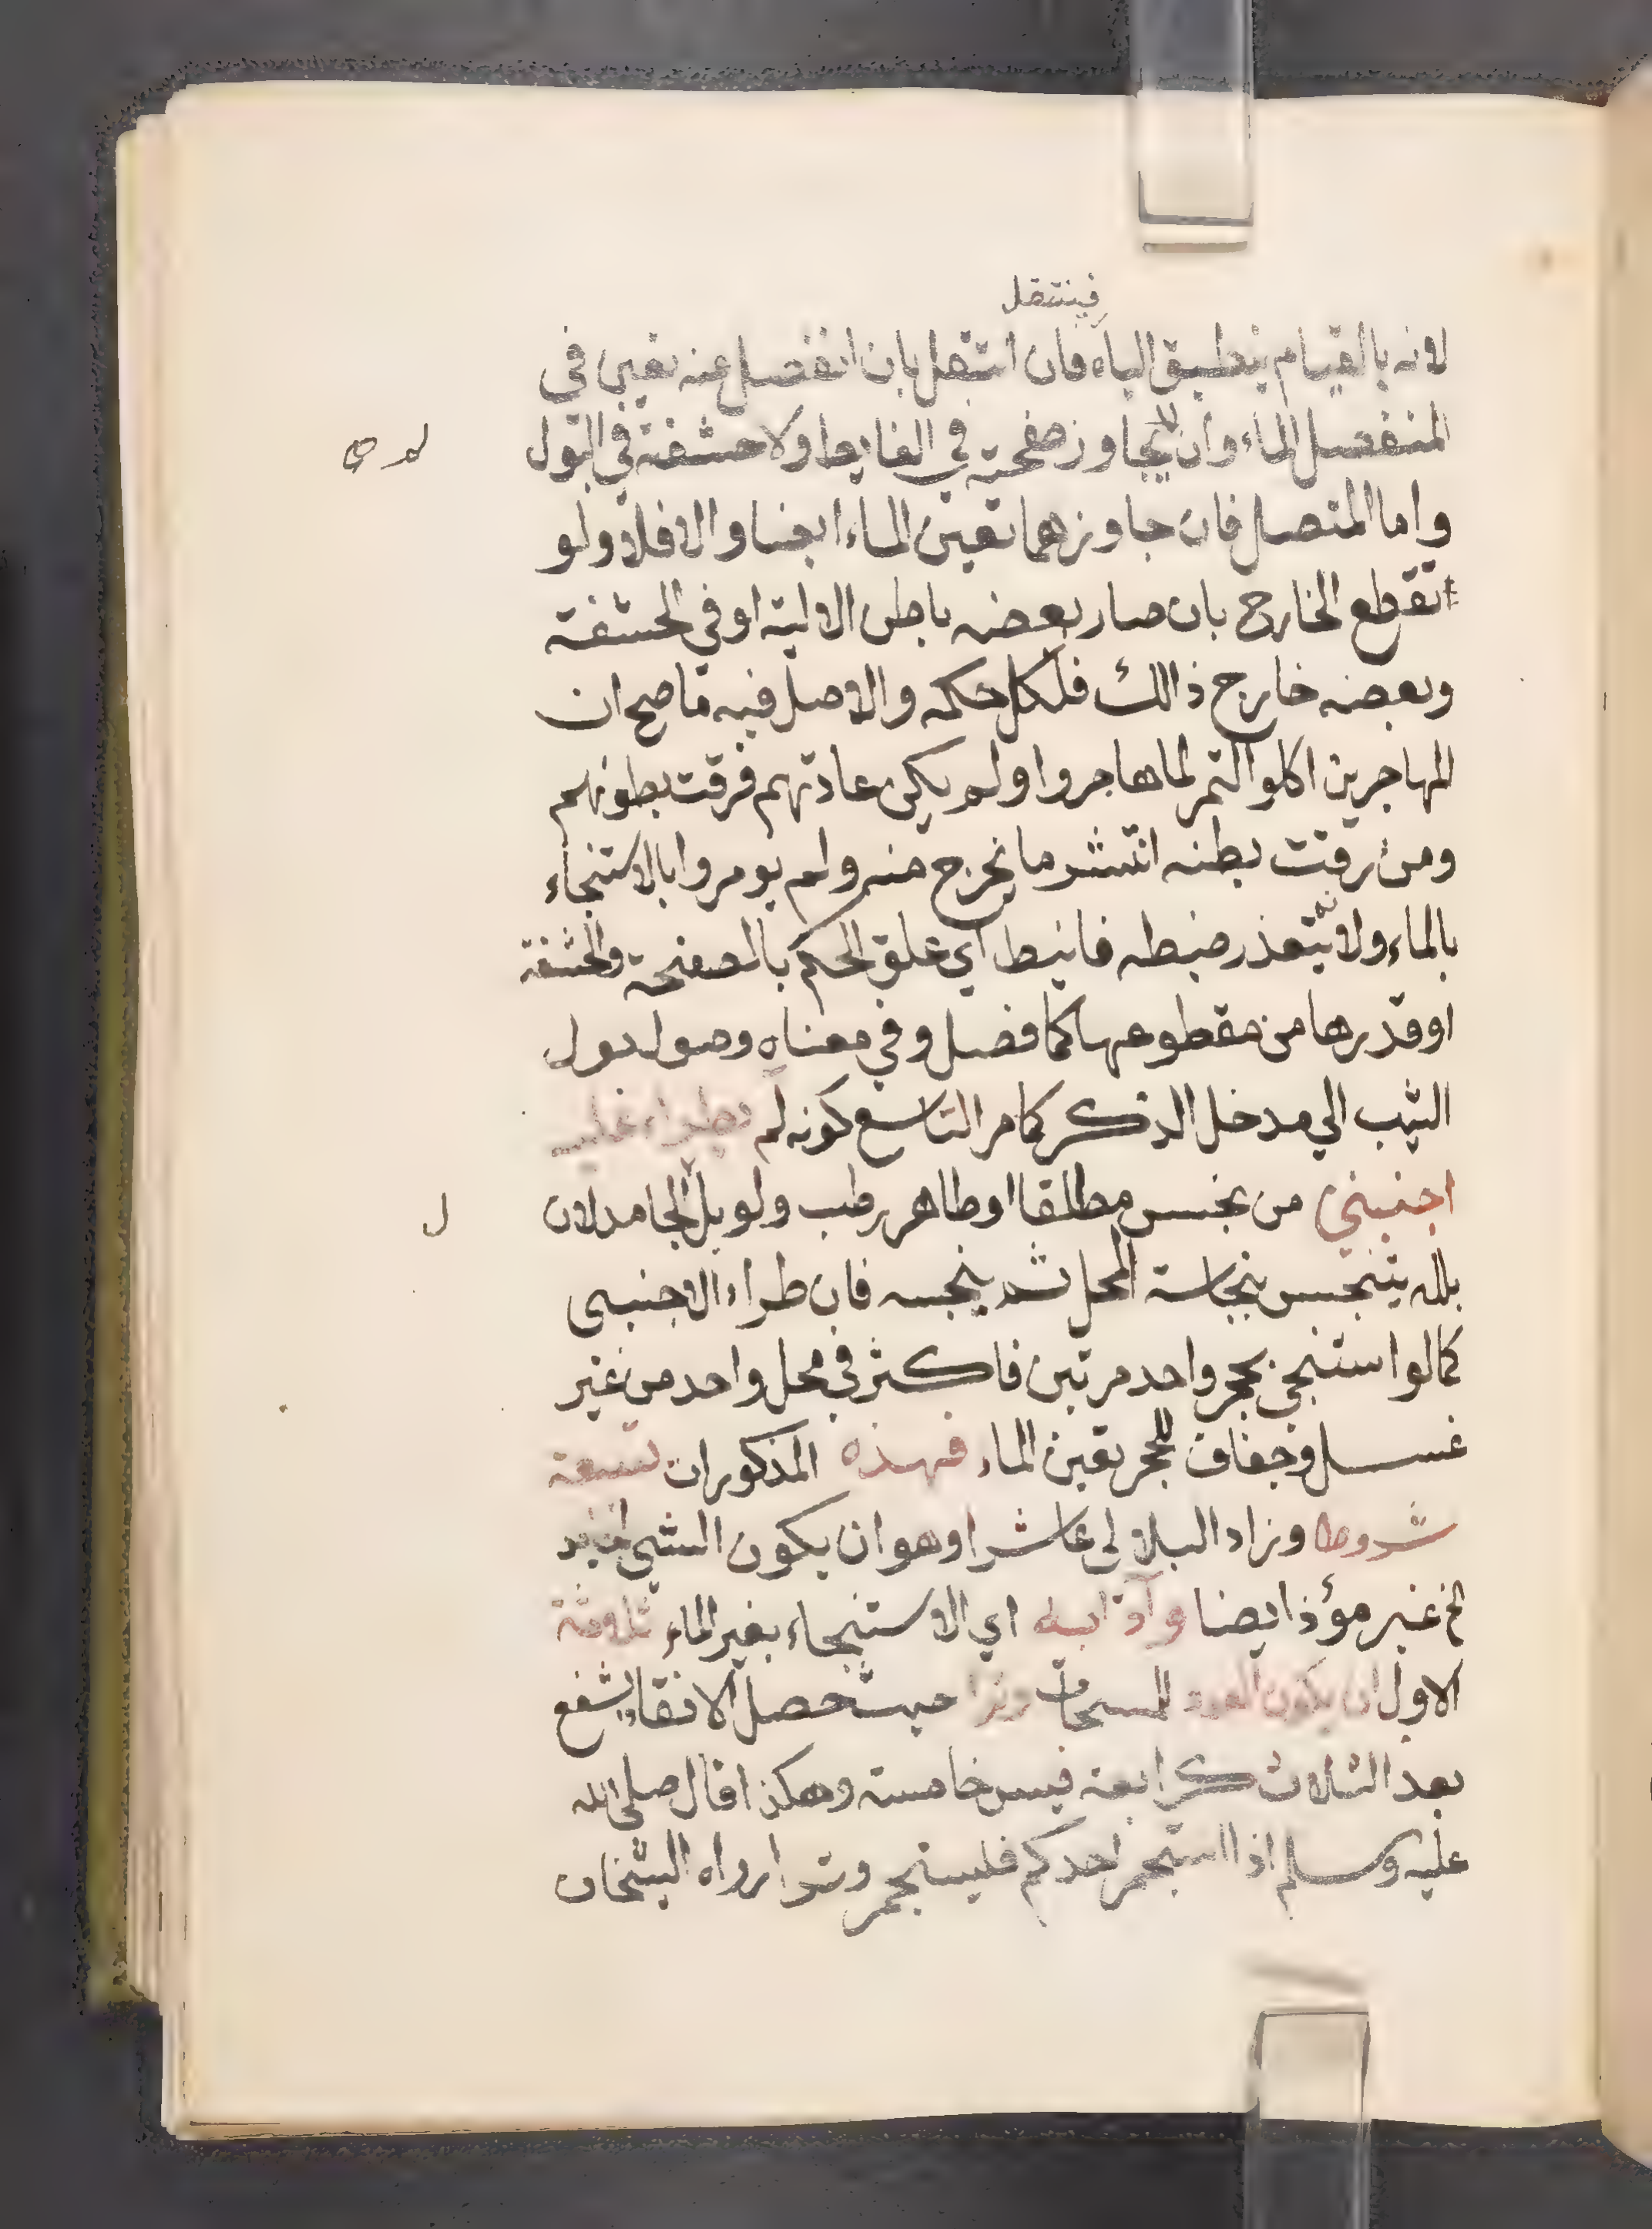 فينتقل
لانه بالقيام ينطبق الياه فان انتقل بان انفصل عنه تعين في
المنفصل الماء وان لا يجاوز صفحته في الغايط ولا حشفة في البول
واما المتصل فان جاوزهما تعين الماء ايضا والا فلا ولو
انقطع الخارج بان صار بعضه باطن الالية او في الحشفة
وبعضه خارج ذالك فلكل حكمه والاصل فيه ما صح ان
المهاجرين اكلوا التمر لما هاجروا ولم يكن عادتهم فرقت بطونهم
ومن رقت بطنه انتشر ما يخرج منه ولم يومروا بالاستنجاء
بالماء ولانه يتعذر ضبطه فانيط اي علق الحكم بالصفحة والحشفة
او قدرها من مقطوعها كما فصل وفي معناه وصول بول
الثيب الي مدخل الذكر كما مر التاسع كونه لم يطراء عليه
اجنبي من نجس مطلقا او طاهر رطب ولو بل الجامد لان
بلله يتنجس بنجاسة المحل ثم ينجسه فان طراء الاجنبي
كما لو استنجي بحجر واحد مرتين فاكثر في محل واحد من غير
غسل وجفاف للحجر تعين الماء فهذه المذكورات تسعة
شروط وزاد البلالي عاشرا وهو ان يكون الشي
غير مؤذ ايضا وآدابه اي الاستنجاء بغير الماء ثلاثة
الاول ان يكون العدد للمسحات وترا حيث حصل الانقاء بشفع
بعد الثلاث كرابعة فيسن خامسة وهكذا قال صلي الله
عليه وسلم اذا استجمر احدكم فليستجمر وترا رواه الشيخان